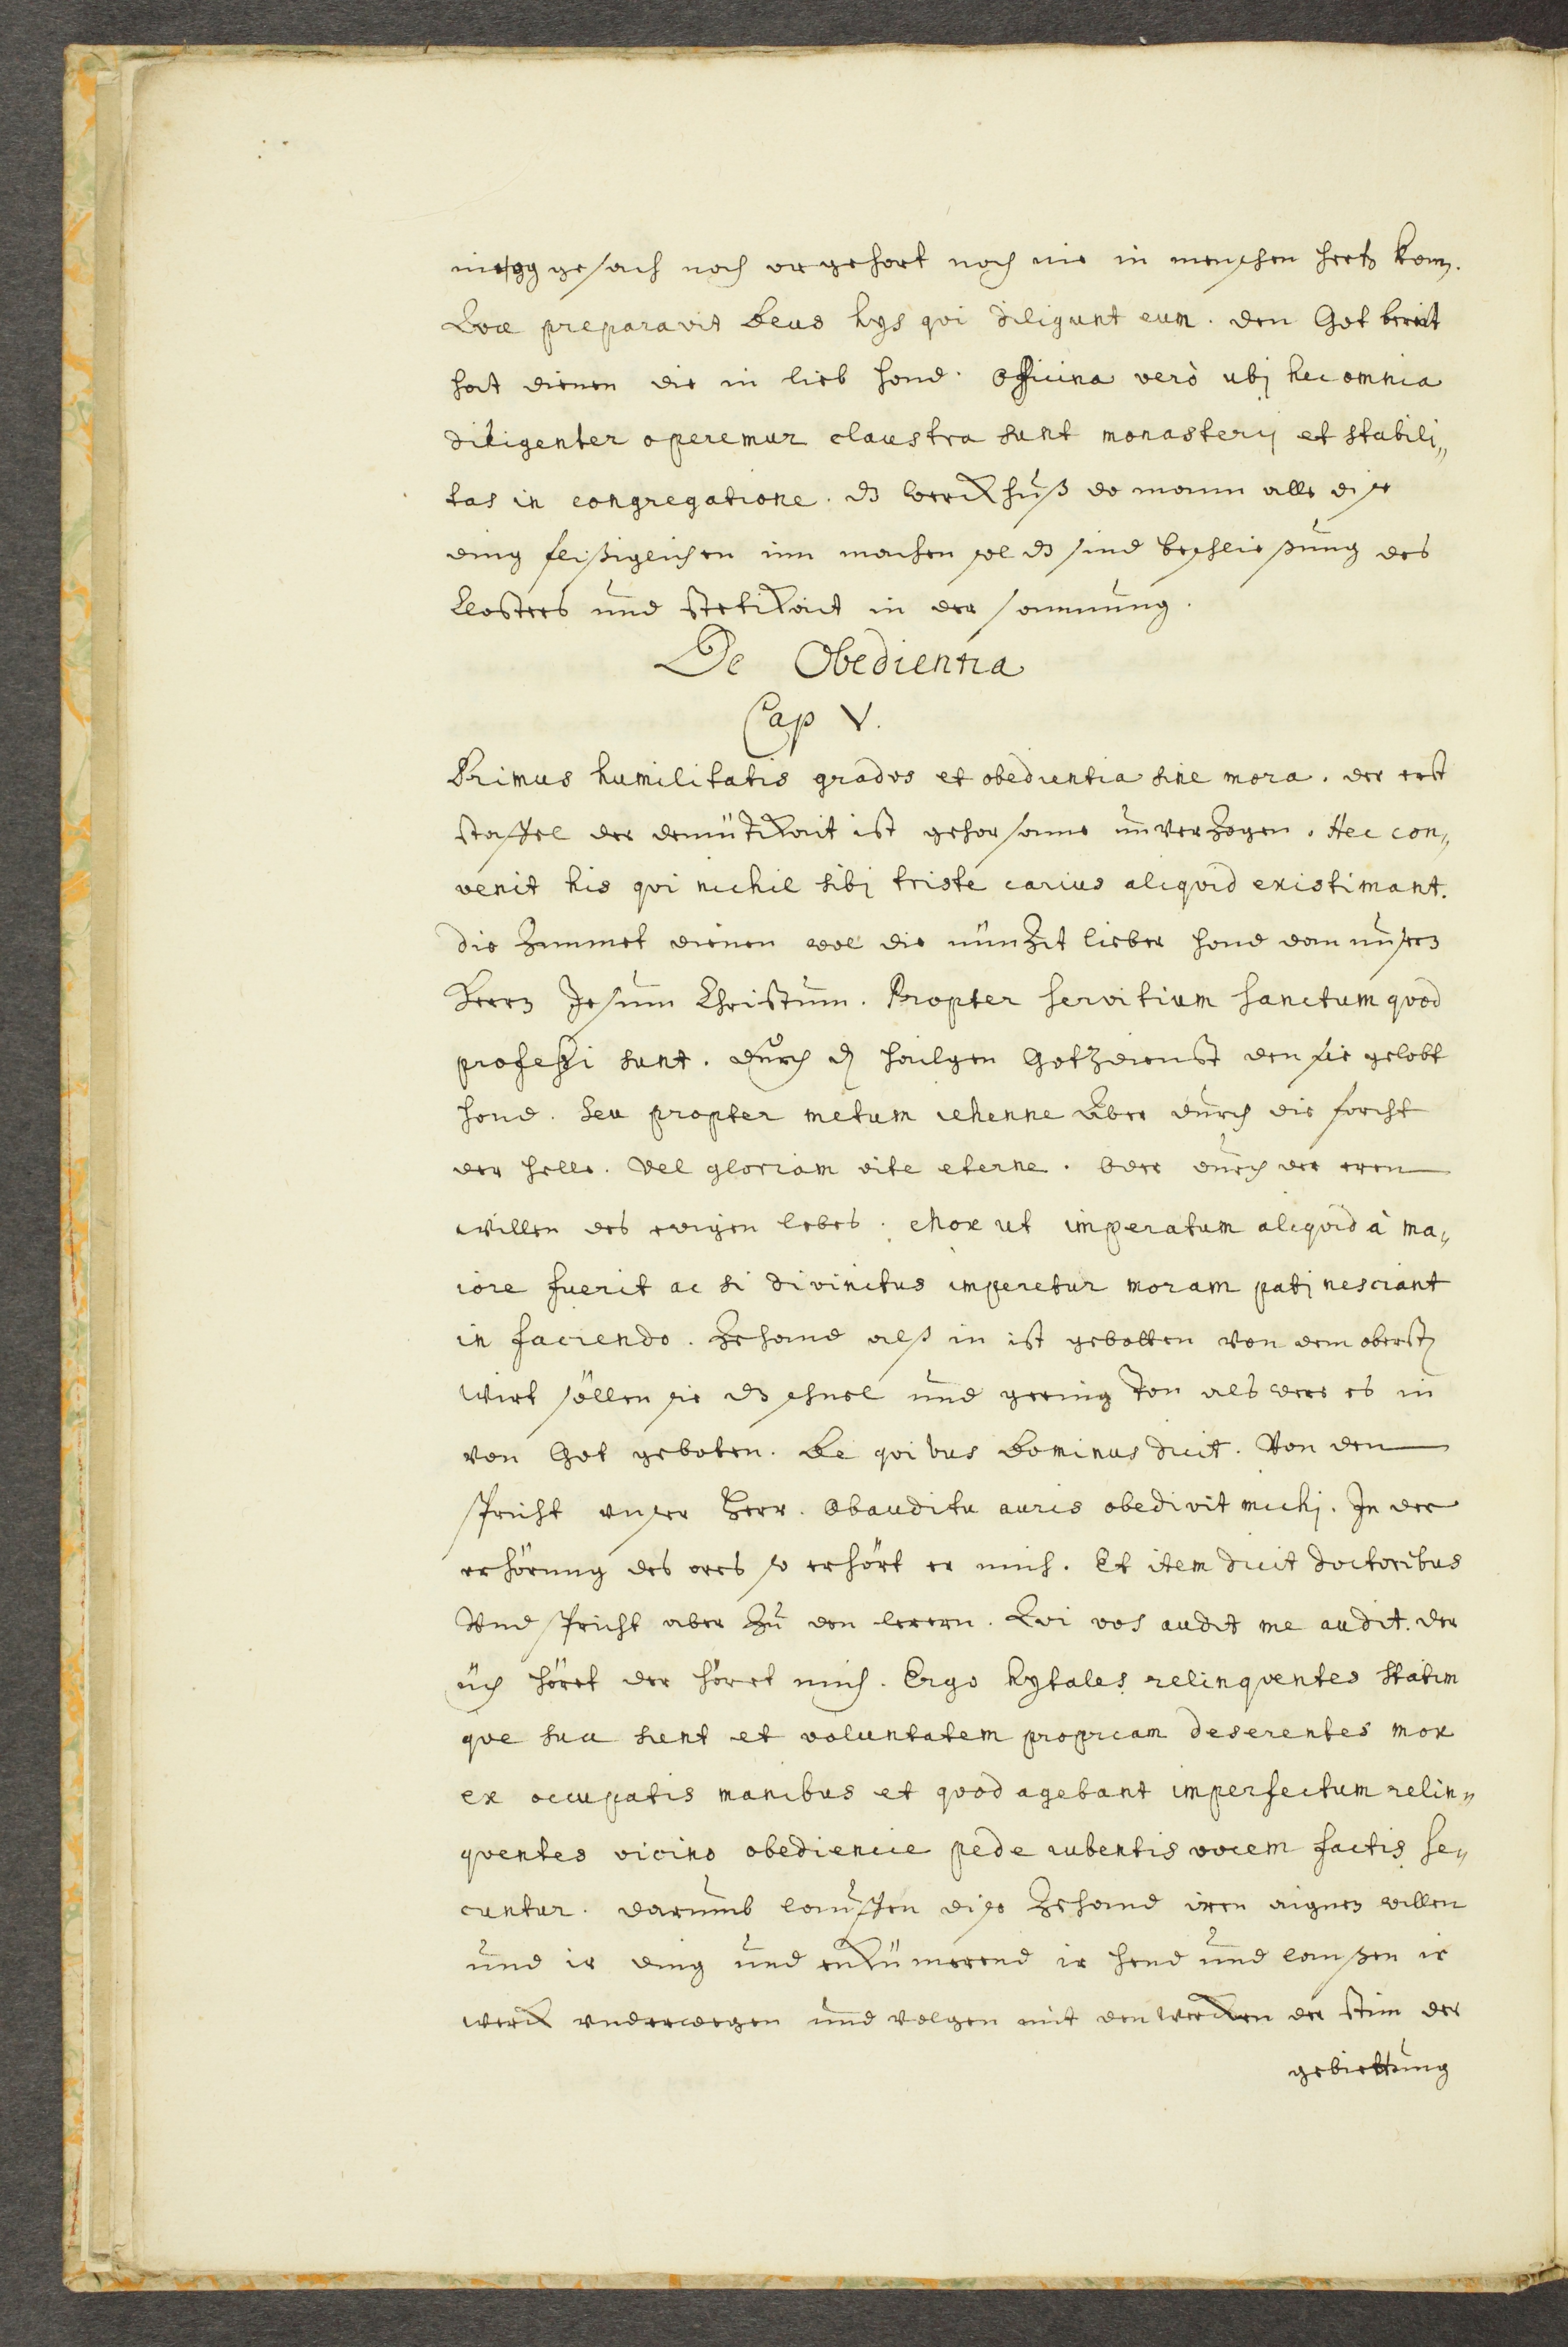 nie ogg gesach noch or gehort noch nie in menschen hertz kom.
Qvæ preparavit Deus hys qvi diligunt eum. den Got bereit
hat dienen die in lieb hond. Officina verò ubj hec omnia
diligenter operemur claustra sunt monasterij et stabili„
tas in congregatione. dz werckhuß do mann alle dise
ding fleißiglichen inn machen sol dz sind beschliessung des
Closters und stetikait in der samnung.
De Obedientia
Cap V.
Primus humilitatis gradvs et obedientia sine mora. der erst
staffel der demütikait ist gehorsame unverzogen. Hec con„
venit his qvi nichil sibj triste carius aliqvid existimant.
die zimmet dienen wol die nünzit lieber hond dan unsern
Herrn Jesum Christum. Propter servitium sanctum qvod
professi sunt. durch dz hailgen Gotzdienst den sie gelobt
hond. Seu propter metum iehenne Aber durch die forcht
der helle. Vel gloriam vite eterne. Oder durch der eren
willen des ewigen lebes. mox ut imperatum aliqvid à ma„
iore fuerit ac si divinitus imperetur moram patj nesciant
in faciendo. Zehand alß in ist gebotten von dem oberst
wirt söllen sie dz schnel und gering ton als were es in
von Got geboten. De qvibus Dominus dicit. Von den
spricht vnser Herr. Obauditu auris obedivit michj. In der
erhörung des ores so erhört er mich. Et item dicit doctoribus
Vnd spricht aber zu den lerern. Qvi vos audit me audit. der
üch hört der höret mich. Ergo hytales relinqventes statim
qve sua sunt et voluntatem propriam deserentes mox
ex occupatis manibus et qvod agebant imperfectum relin„
qventes vicino obediencie pede iubentis vocem factis se„
cuntur. darumb lausten dise zehand iren aignen willen
und ir ding und enkümerend ir hend und laußen ir
werck vnderwegen und volgen mit den wercken der stim der
gebiettung